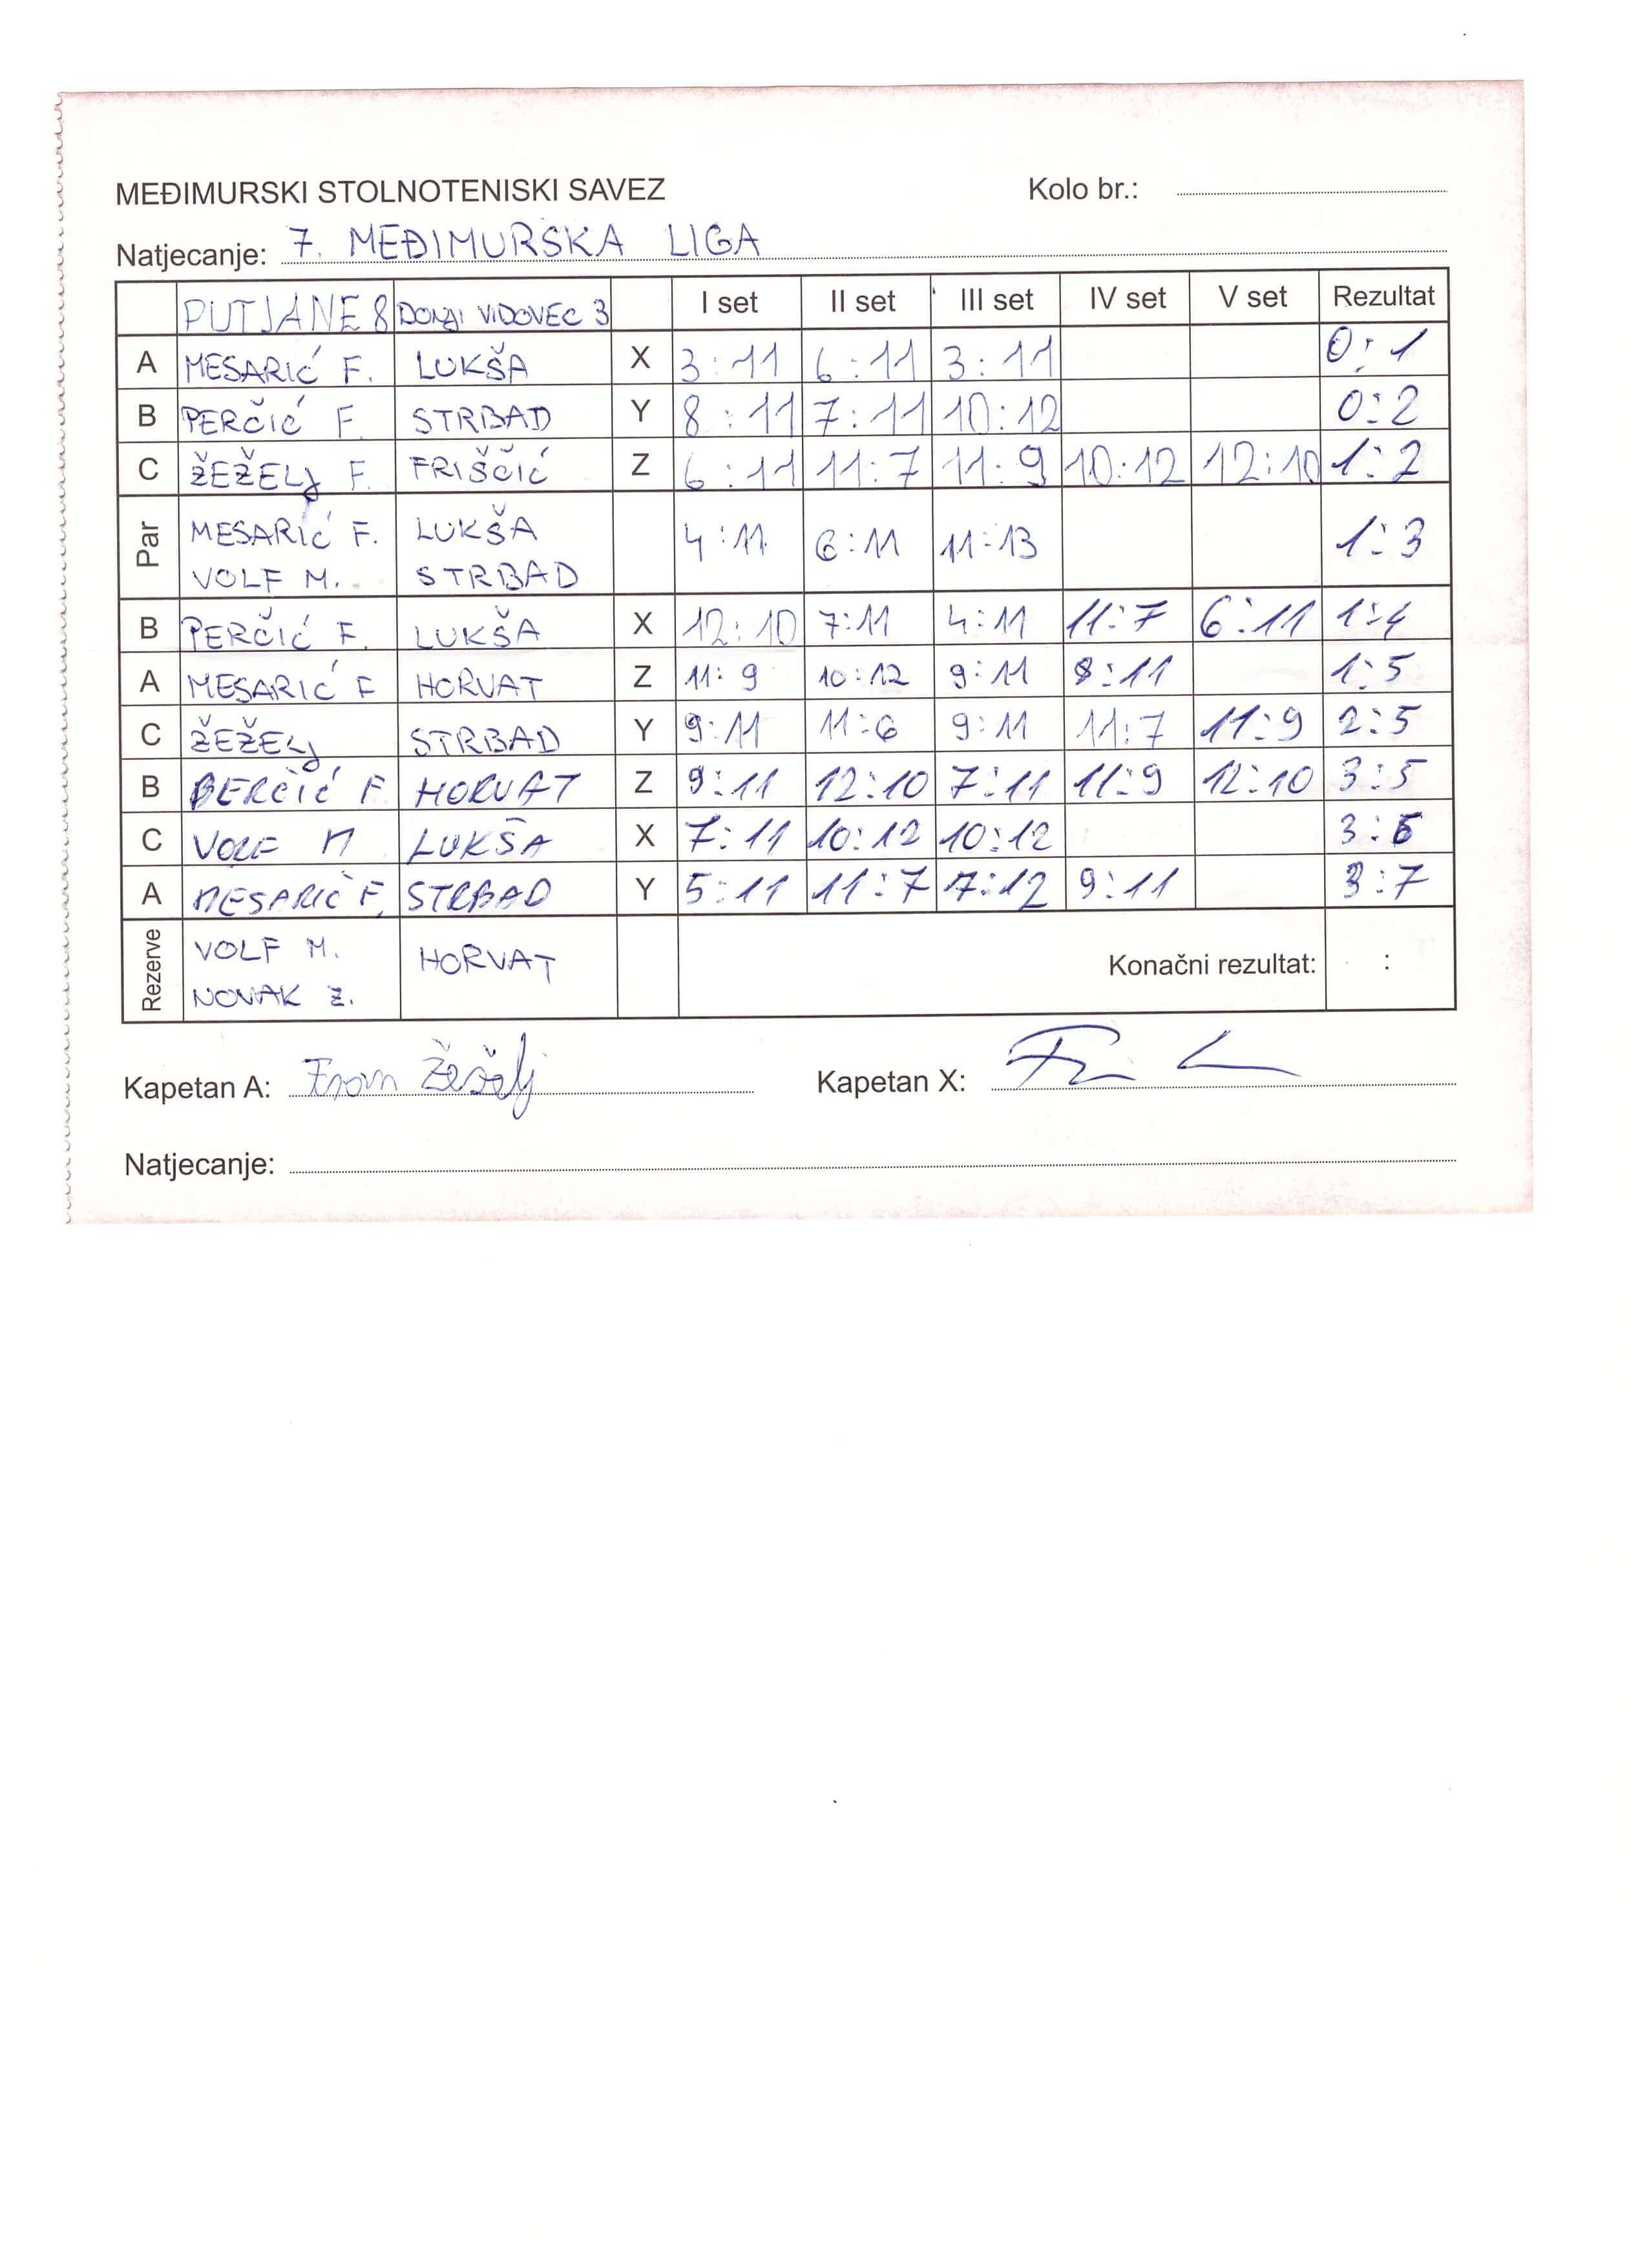 MEĐIMURSKI STOLNOTENISKI SAVEZ Kolo br.:
Natjecanje: 7. MEĐIMURSKA LIGA
PUTJANE 8 DONJI VIDOVEC 3 I set II set III set IV set V set Rezultat
A MESARIĆ F. LUKŠA X 3:11 6:11 3:11 0:1
B PERČIĆ F. STRBAD Y 8:11 7:11 10:12 0:2
C ŽEŽELJ F. FRIŠČIĆ Z 6:11 11:7 11:9 10:12 12:10 1:2
Par MESARIĆ F. LUKŠA 4:11 6:11 11:13 1:3
VOLF M. STRBAD
B PERČIĆ F. LUKŠA X 12:10 7:11 4:11 11:7 6:11 1:4
A MESARIĆ F HORVAT Z 11:9 10:12 9:11 8:11 1:5
C ŽEŽELJ STRBAD Y 9:11 11:6 9:11 11:7 11:9 2:5
B PERČIĆ F HORVAT Z 9:11 12:10 7:11 11:9 12:10 3:5
C VOLF M LUKŠA X 7:11 10:12 10:12 3:6
A MESARIĆ F. STRBAD Y 5:11 11:7 7:12 9:11 3:7
Rezerve VOLF M. HORVAT Konačni rezultat: :
NOVAK Z.
Kapetan A: Fran Žeželj Kapetan X:
Natjecanje: